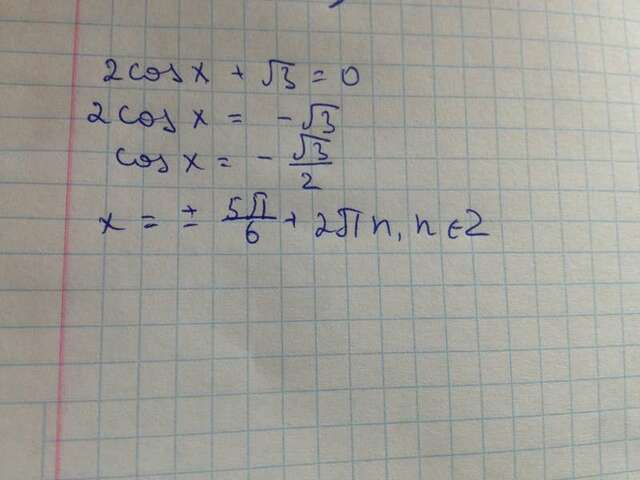 2cos x + √3 = 0
2cos x = -√3
cos x = - √3/2
x = ± 5π/6 + 2πn, n ∈ Z